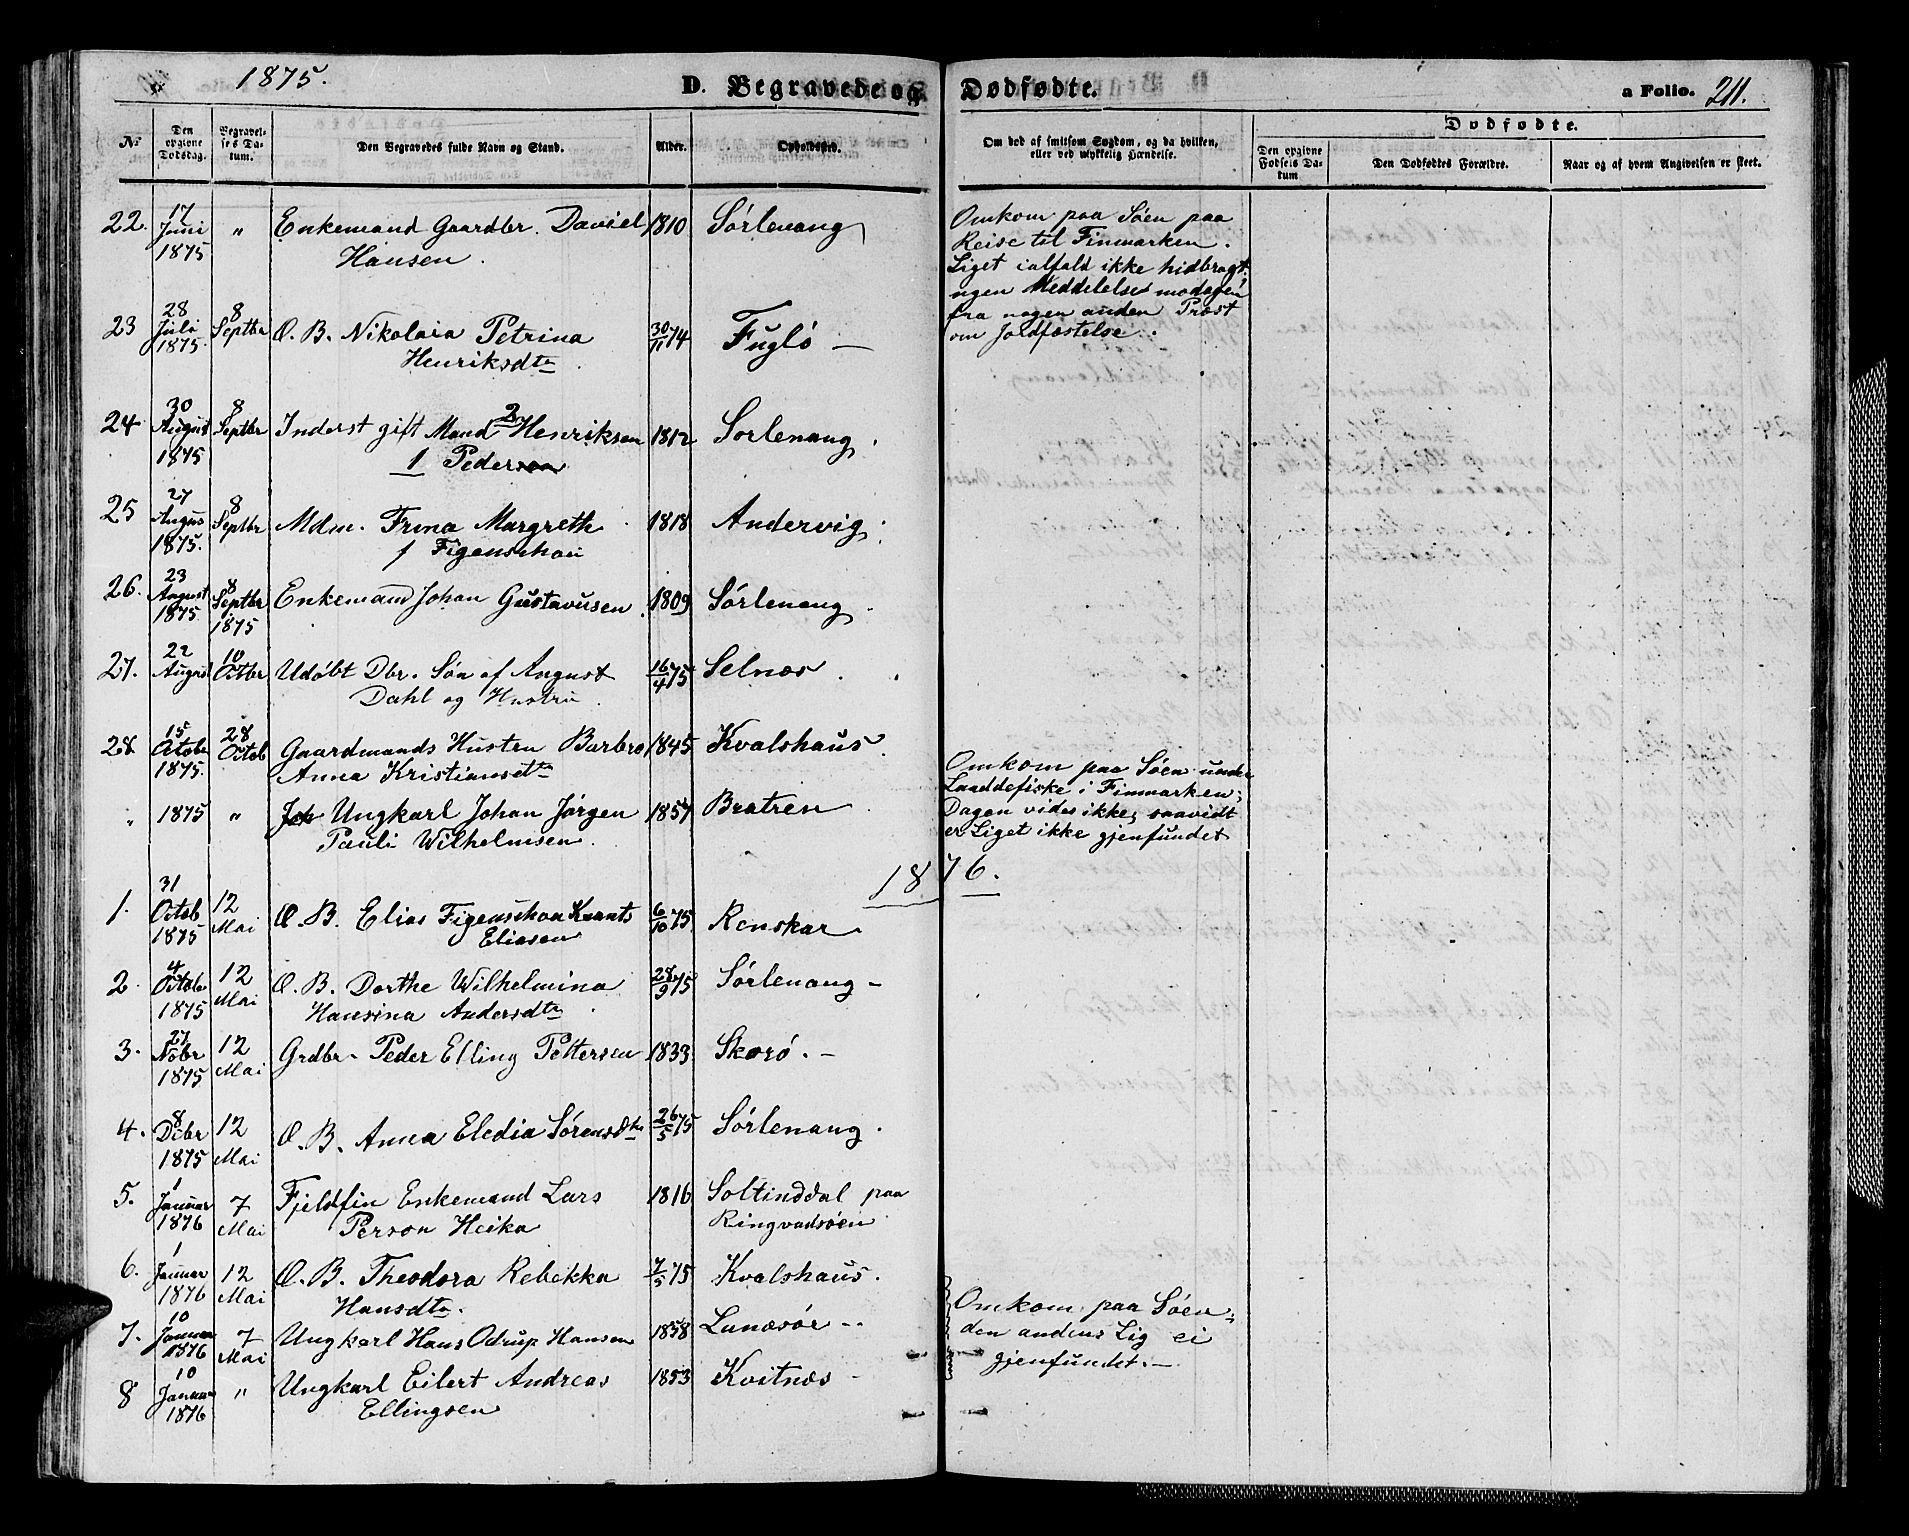 1875.
D. Begravede og Dødfødte.
a Folio. 211.
Dødfødte.
No
Den opgivne Dødsdag.
Begravelses Datum.
Den Begravedes fulde Navn og Stand.
Alder.
Opholdssted.
Om død af smitsom Sygdom, og da hvilken, eller ved ulykkelig Hændelse.
Den opgivne Fødsels Datum
Den Dødfødtes Forældre.
Naar og af hvem Angivelsen er skeet.
22. 17 Juni 1875 " Enkemand Gaardbr. Daniel Hansen. 1810 Sörlenang
Omkom paa Söen paa
Reise til Finmarken.
Liget ialfald ikke hidbragt.
ngen Meddelelse modagen
fra nogen anden Præst
om Jordfæstelse.
23 28 Juli 1875 8 Septbr O. B. Nikolaia Petrina Henriksdtr. 30/11 74 Fuglö —
24 30 August 1875 8 Septbr Inderst gift Mand 2 Henriksen 1 Pederson 1812 Sorlenang.
25 27 Augus 1875. 8 Septbr Mdm. Frina Margreth f Figenschou 1818 Andervig.
26. 23 August 1875 8 Septbr 1875 Enkemand Johan Gustavusen. 1809 Sörlenang
27. 22 August 10 Octbr Udöbt Dbr. Sön af August Dahl og Hustru. 16/4 75 Selnæs.
28 15 Octobr 1875. 28 Octob Gaardmands Hustru Barbro Anna Kristiansdtr 1845 Kvalshaus.
" 1875 " Joh Ungkarl Johan Jörgen Pauli Wilhelmsen. 1857 Bratren
Omkom paa Söen under
Landdefiske i Finmarken;
Dagen vides ikke, saavidt
er Liget ikke gjenfundet
1876.
1. 31 Octob 1875 12 Mai O. B. Elias Figenschou Kvants Eliasen 6/10 75 Renskar
2 4 Octobr 1875 12 Mai O. B. Dorthe Wilhelmina Hansina Andersdtr. 28/9 75 Sörlenang -
3. 27 Nobr 1875 12 Mai Grdbr. Peder Elling Pettersen 1833 Skorö. -
4. 8 Debr 1875 12 Mai O. B. Anna Eledia Sörensdtr 26/5 75 Sörlenang.
5. 1 Januar 1876 7 Mai Fjeldfin Enkemand Lars Person Heika 1816 Soltinddal paa Ringvadsöen
6. 1 Januar 1876 12 Mai O. B. Theodora Rebekka Hansdtr. 7/5 75 Kvalshaus.
7. 10 Januar 1876 7 Mai Ungkarl Hans Odrup Hansen 1858 Lanæsör --
Omkom paa Söen,
den andens Lig ei
gjenfundet. —
8 10 Januar 1876 " Ungkarl Eilert Andreas Ellingsen 1853 Kvitnæs -